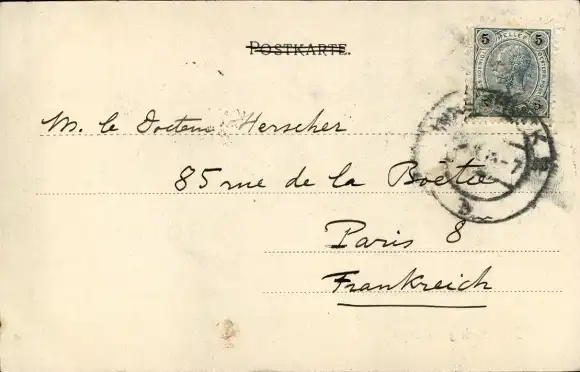 POSTKARTE.
5 HELLER 5
5 5
M. le Docteur Herscher
85 rue de la Boëtie
Paris 8
Frankreich